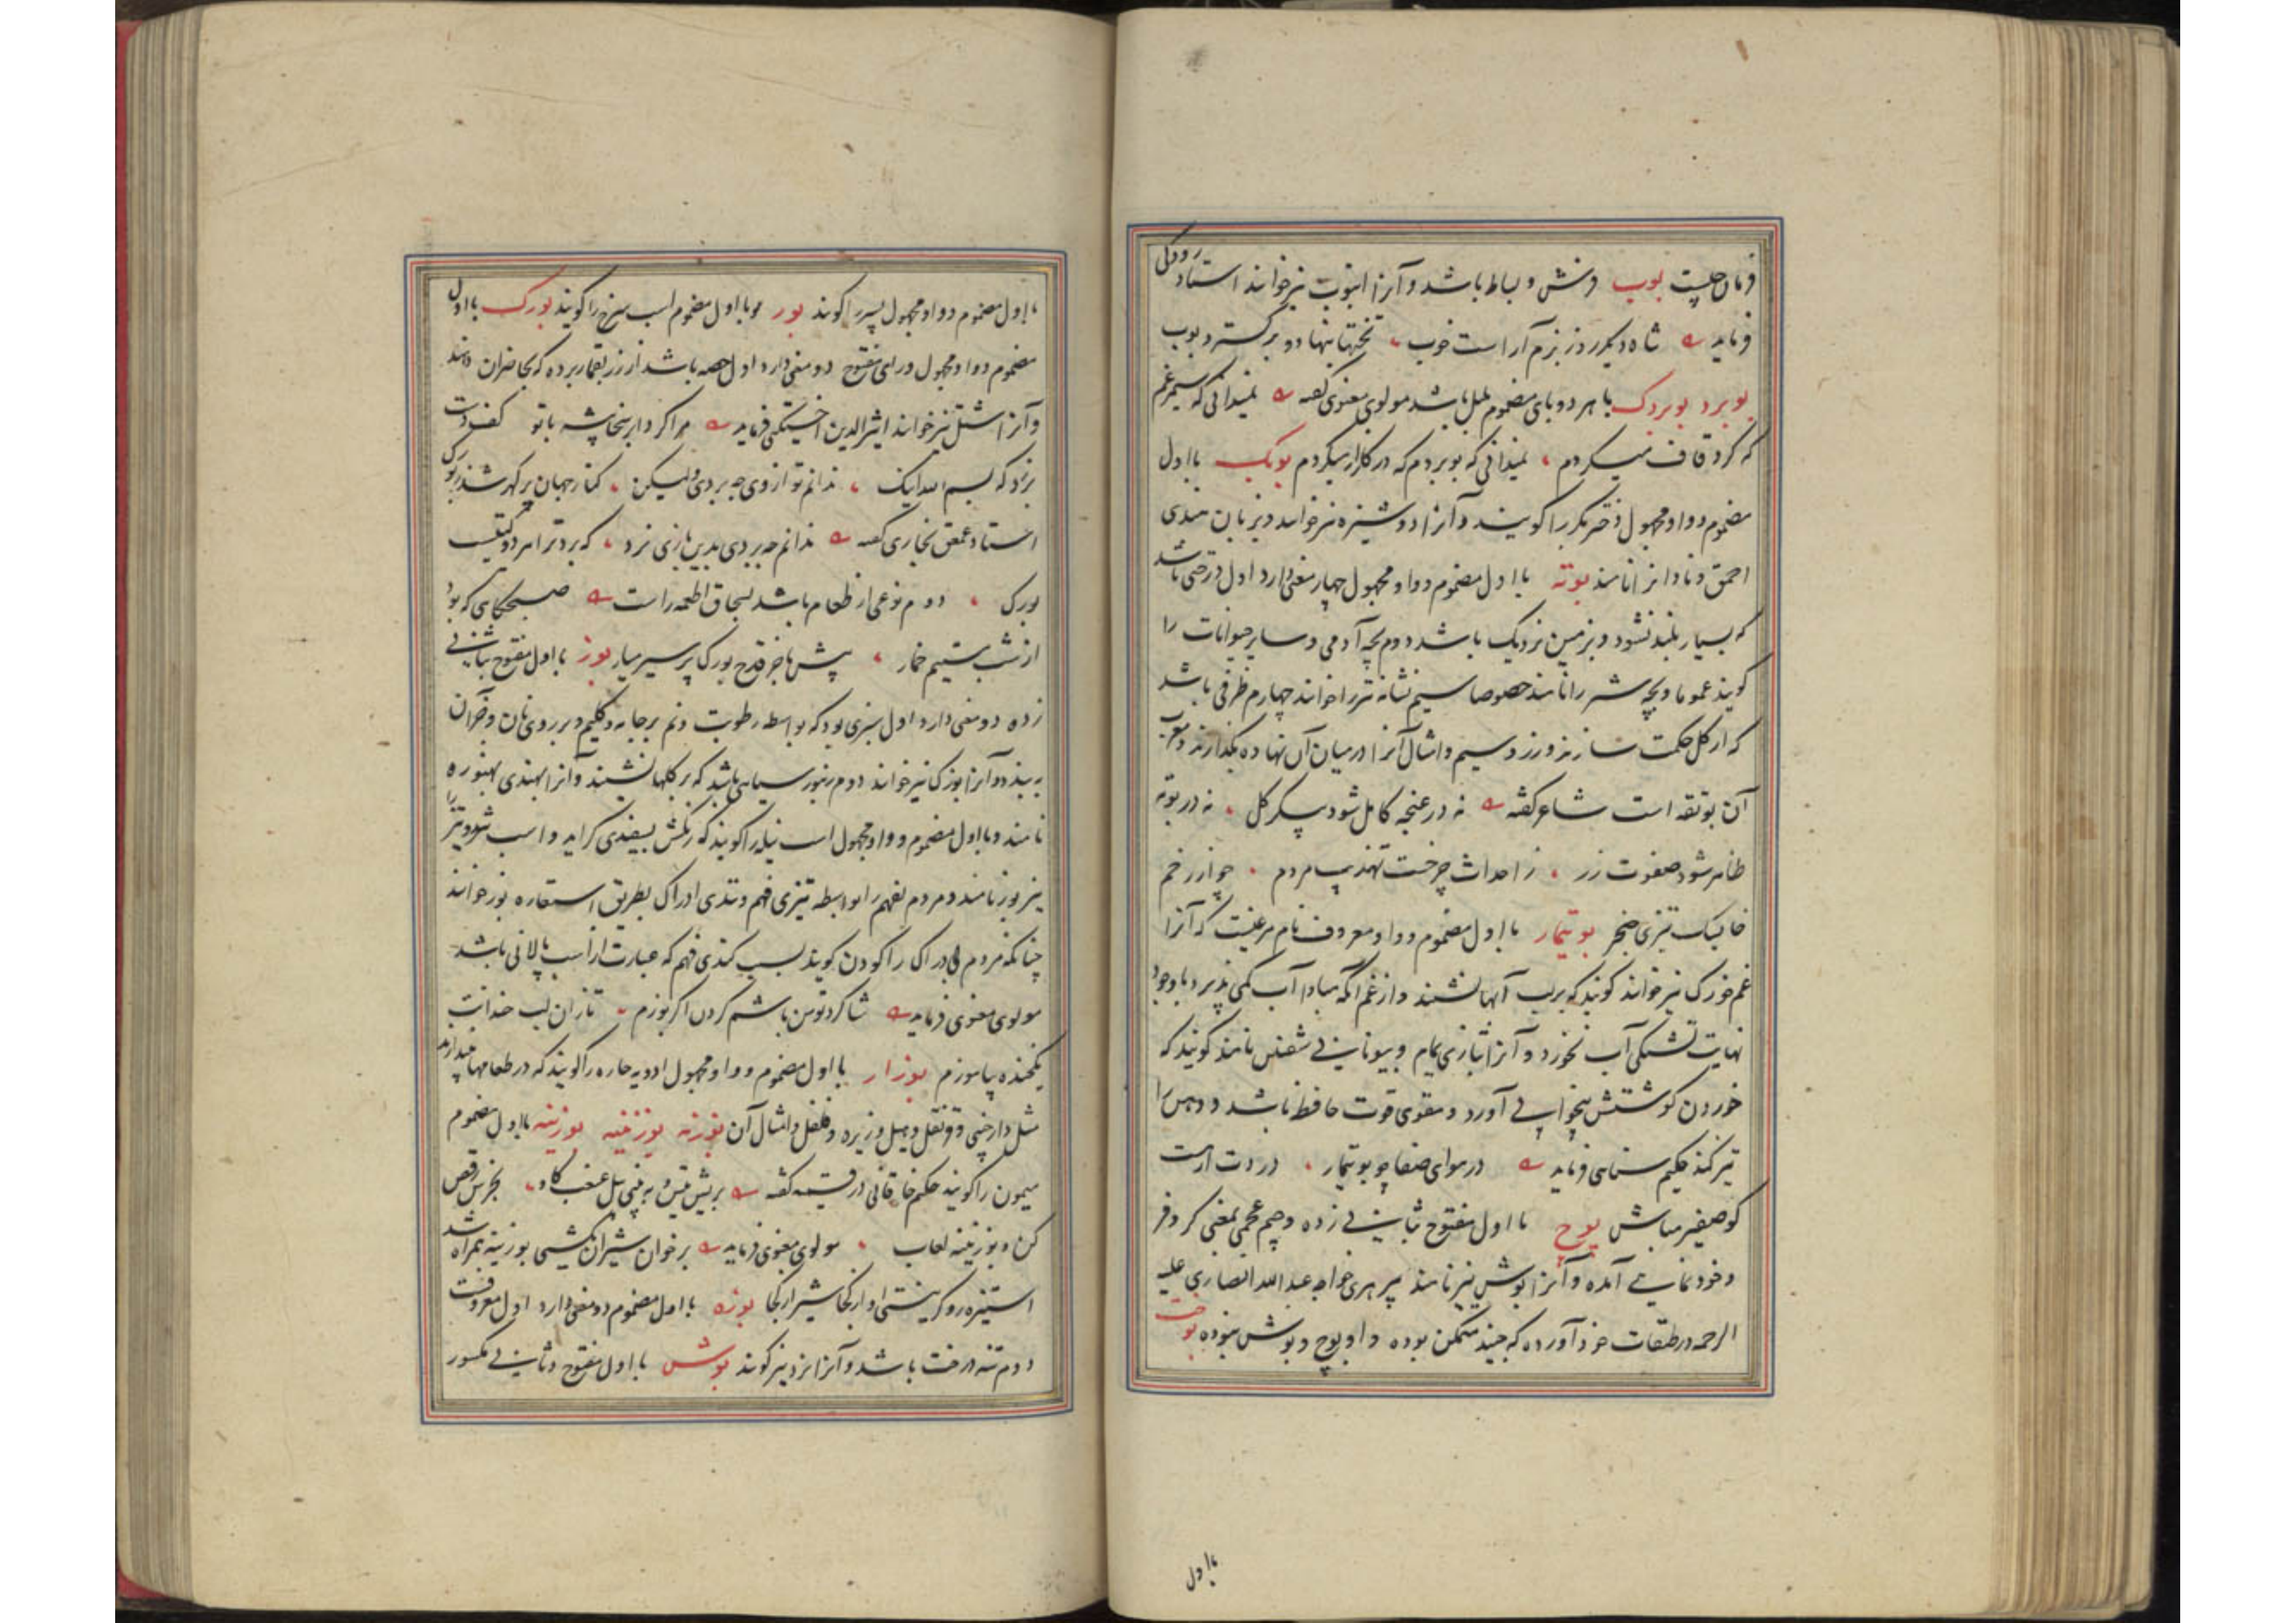 فرمان چلیپت بوب فرش و بساط باشد و آنرا انبوب نیز خوانند استاد رودکی
فرماید شاه دیگر روز بزم آراست خوب تختها بنهاد و برگسترد بوب
بوبرد بوبردک با هر دو بای مضموم بلبل باشد مولوی معنوی گفته نمیدانی که سیمرغم
که گرد قاف میگردم نمیدانی که بوبردم که در گلزار میگردم بوبک با اول
مضموم و واو مجهول دختر بکر را گویند و آنرا دوشیزه نیز خوانند و بزبان هندی
احمق و نادانرا نامند بوته با اول مضموم و واو مجهول چهار معنی دارد اول درختی باشد
که بسیار بلند نشود و بزمین نزدیک باشد دوم بچه آدمی و سایر حیوانات را
گویند عموما و بچه شتر را نامند خصوصا سیم نشانه تیر را خوانند چهارم ظرفی باشد
که از گل حکمت سازند و زر و سیم و امثال آنرا در میان آن نهاده بگدازند و معرب
آن بوتقه است شاعر گفته نه در غنچه کامل شود پیکر گل نه در بوته
ظاهر شود صفوت زر ز احداث چرخست تهذیب مردم چو از زخم
خایسک تیزی خنجر بوتیمار با اول مضموم و واو معروف نام مرغیست که آنرا
غم خورک نیز خوانند گویند که بر لب آبها نشیند و از غم آنکه مبادا آب کمی پذیرد با وجود
نهایت تشنگی آب نخورد و آنرا بتازی یمام و بیونانی شفنین نامند گویند که
خوردن گوشتش بیخوابی آورد و مقوی قوت حافظه باشد و ذهن را
تیز کند حکیم سنایی فرماید در هوای صفا چو بوتیمار دردت ار هست
گو صفیر مباش بوچ با اول مفتوح بثانی زده و جیم عجمی بمعنی کر و فر
و خودنمایی آمده و آنرا بوش نیز نامند پیر هری خواجه عبدالله انصاری علیه
الرحمه در طبقات خود آورده که جنید متمکن بوده و او بوچ و بوش نبوده بوخت
با اول
با اول مضموم و واو مجهول پسر را گویند بور و با اول مضموم اسب سرخ را گویند بورک با اول
مضموم و واو مجهول و رای مفتوح دو معنی دارد اول حصه باشد از زر بقمار برده که بحاضران دهند
و آنرا شتل نیز خوانند اثیرالدین اخسیکتی فرماید مرا کردار بنخاشه با تو کف دست
نزد که بسم الله اینک ندانم تو از وی چه بردی ولیکن کنار جهان پر گهر شد ز بورک
استاد عمعق بخاری گفته ندانم چه بردی بدین بازی نرد که برد ترا هر دو گیتیست
بورک دوم نوعی از طعام باشد بسحاق اطعمه راست صبحگاهی که بود
از شب مستیم خمار پیش ما جز قدح بورک پر سیر میار بوز با اول مفتوح بثانی
زده دو معنی دارد اول سبزی بود که بواسطه رطوبت و نم بر جامه و گلیم و بر روی نان و جز آن
به بندد و آنرا بوزک نیز خوانند دوم زنبور سیاهی باشد که بر گلها نشیند و آنرا بهندی بهنوره
نامند و با اول مضموم و واو مجهول اسب نیله را گویند که رنگش بسفیدی گراید و اسب تند و تیز را
نیز بوز نامند و مردم تیز فهم را بواسطه تیزی فهم و تندی ادراک بطریق استعاره بوز خوانند
چنانکه مردم بی ادراک را کودن گویند بسبب کندی فهم که عبارت از اسب پالانی باشد
مولوی معنوی فرماید شاگرد تو من باشم گر کودن اگر بوزم تا زان لب خندانت
یکخنده بیاموزم بوزار با اول مضموم و واو مجهول ادویه حاره را گویند که در طعامها بیندازند
مثل دارچینی و قرنفل و هیل و زیره و فلفل و امثال آن بوزنه بوزنینه بوزینه با اول مضموم
میمون را گویند حکیم خاقانی در قسمیه گفته بریش تیس و به بینی پیل و غبغب گاو بخرس رقص
کن و بوزنینه لعاب مولوی معنوی فرماید بر خوان شیران یکشبی بوزینه همراه شد
استیزه رو گر نیستی او از کجا شیر از کجا بوزه با اول مضموم دو معنی دارد اول معروفست
دوم تنه درخت باشد و آنرا نرد نیز گویند بوش با اول مفتوح و ثانی مکسور